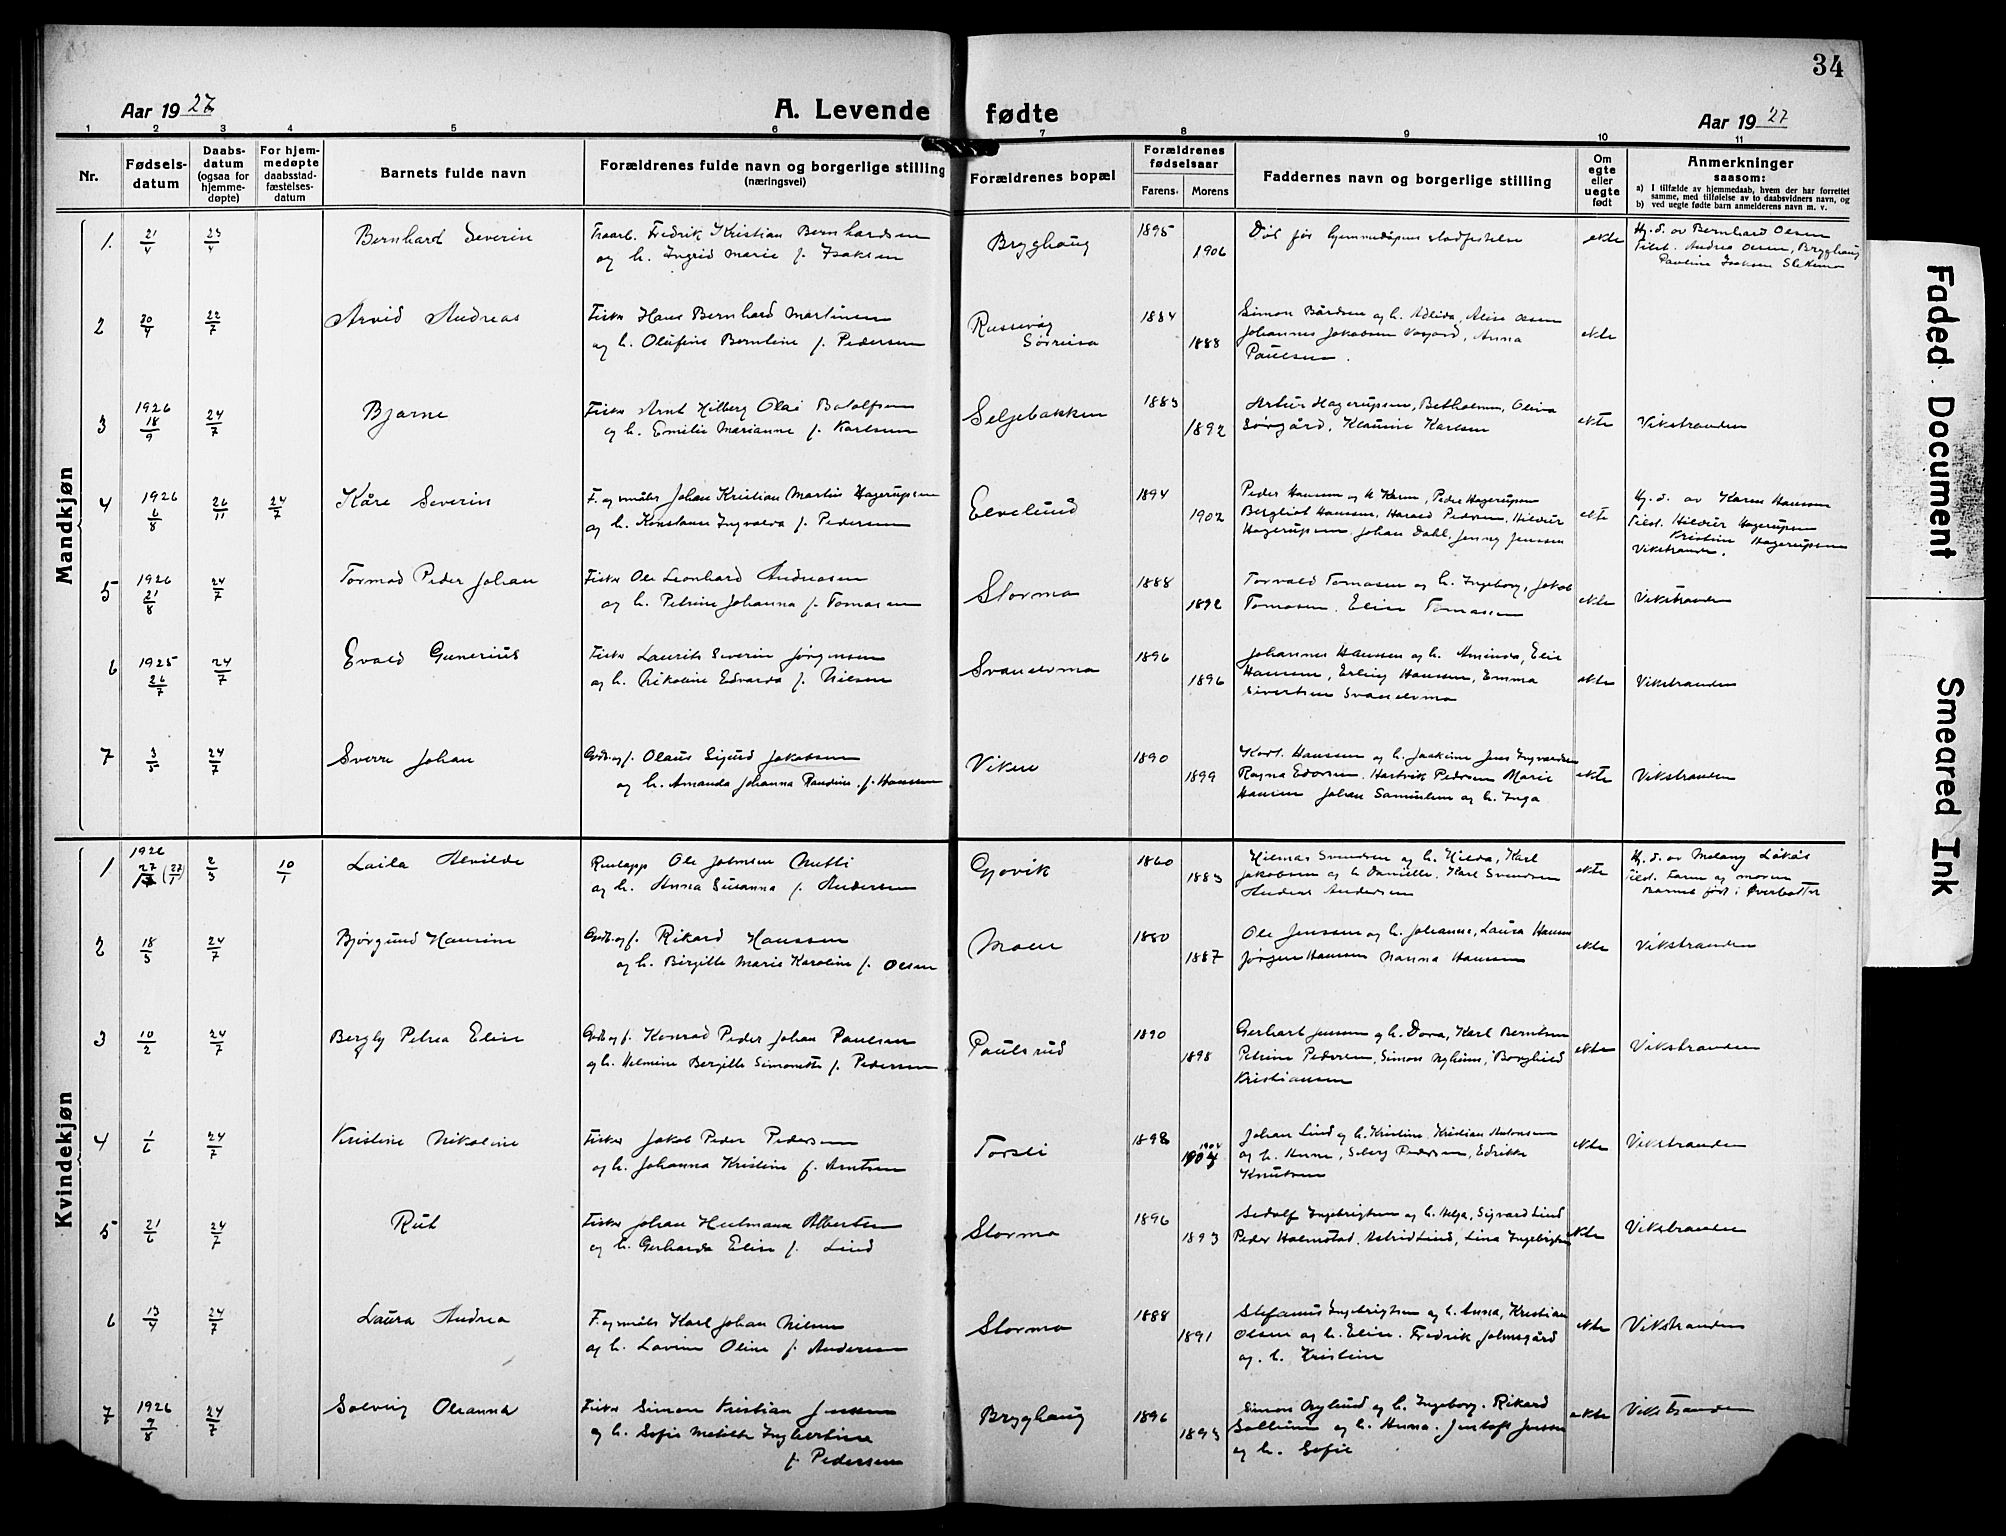 34
Aar 1927
A. Levende fødte
Aar 1927
1 2 3 4 5 6 7 8 9 10 11
Nr.
Fødsels-
datum
Daabs-
datum
(ogsaa for
hjemme-
døpte)
For hjem-
medøpte
daabsstad-
fæstelses-
datum
Barnets fulde navn
Forældrenes fulde navn og borgerlige stilling
(næringsvei)
Forældrenes bopæl
Forældrenes
fødselsaar
Farens. Morens
Faddernes navn og borgerlige stilling
Om
egte
eller
uegte
født
Anmerkninger
saasom:
a) I tilfælde av hjemmedaab, hvem der har forrettet
samme, med tilføielse av to daabsvidners navn, og
b) ved uegte fødte barn anmelderens navn m. v.
Mandkjøn
1. 21/4 Bernhard Severin
Fredrik Kristian Bernhardsen
og h. Ingrid Marie f. Isaksen
Brygghaug
1895
1906
Død før hjemmedåpens stadfestelse
ekte
Hj. d. av Bernhard Olsen
Tilst. Andrea Olsen, Brygghaug
Pauline Isaksen
2 22/7 Arvid Andreas
Fisker Hans Bernhard Martinsen
og h. Olufine Bernline f. Pedersen
Russevåg
Sørreisa
1884
1888
Simon Bårdsen og h. Adlida, Alise Olsen
Johannes Jakobsen, Anna
Paulsen.
ekte
3 1926 18/9 24/7 Bjarne
Fisker Arnt Hilberg Olai
og h. Emilie Marianne f. Karlsen
Seljebakken
1883
1892
Artur Hagerupsen, Betholmen, Oliva
Sørgård, Klausine Karlsen
ekte
Vikstranden
4 1926 6/8 26/11 24/7 Kåre Severin
F. og småbr. Johan Kristian Martin Hagerupsen
og h. Konstanse Ingvalda f. Pedersen
Elvelund
1894
1902
Peder Hansen og h. Karen, Peder Hagerupsen
Bergliot Hansen, Harald Pedersen, Hildur
Hagerupsen, Johan Dahl, Jenny Jenssen
ekte
Hj. d. av Karen Hansen
Tilst. Hildur Hagerupsen
Kristine Hagerupsen
Vikstranden.
5 1926 21/8 24/7 Tormod Peder Johan
Fisker Ole Leonhard Andreasen
og h. Petrine Johanna f. Tomasen
Slormo
1888
1892
Torvald Tomasen og h. Ingeborg, Jakob
Tomasen, Elise Tomassen
ekte
Vikstranden
6 1925 26/7 24/7 Evald Gunerius
Fisker Laurits Severin Jørgensen
og h. Nikoline Edvarda f. Nilsen
Svanelvmo
1896
1896
Johannes Hanssen og h. Aminda, Elie
Hansen, Erling Hanssen, Emma
Sivertsen Svanelvmo
ekte
Vikstranden
7 3/5 24/7 Sverre Johan
Grdb. og f. Olaus Sigurd Jakobsen
og h. Amanda Johanna Randine f. Hanssen
Viken
1890
1899
Karl Hanssen og h. Jaakine Jens Ingvardsen
Ragna Edvarsen, Hartvik Pedersen Marie
Hansen Johan Samuelsen og h. Inga
ekte
Vikstranden
Kvindekjøn
1 1926 2/3 10/1 Laila Alvilde
Ole Johnsen Nutti
og h. Anna Susanna f. Andersen
Gjovik
1860
1883
Hilmar Svendsen og h. Hilda, Karl
Jakobsen og h. Danielle, Karl Svendsen
Andreas Andersen
ekte
Hj. d. av
Tilst. Faren og moren
Barnet født i Øverbotten
2 18/3 24/7 Bjørgund Hansine
Grdb. og f. Rikard Hanssen
og h. Birgitte Marie Karoline f. Olsen
Moen
1880
1887
Ole Jenssen og h. Johanne, Laura Hansen
Jørgen Hansen Nanna Hanssen
ekte
Vikstranden
3 10/2 24/7 Bergly Petrea Elise
Grdb. og f. Konrad Peder Johan Paulsen
og h. Helmine Bergitte Simonette f. Pedersen
Paulsrud
1890
1898
Gerhart Jensen og h. Dora, Karl Berntsen
Petrine Pedersen, Simon Nyheim, Borghild
Kristiansen
ekte
Vikstranden
4 1/6 24/7 Kristine Nikoline
Fisker Jakob Peder Pedersen
og h. Johanna Kristine f. Arntsen
Torsli
1898
1904
Johan Lind og h. Kristine, Kristian Antonsen
og h. Anne, Solveig Pedersen, Edrikke
Knutsen
ekte
Vikstranden
5 21/6 24/7 Rut
Fisker Johan Hulmann Albertsen
og h. Gerharda Elise f. Lind
Slormo
1896
1893
Sedolf Ingebrigtsen og h. Helga, Sigvard Lind
Peder Holmstad, Astrid Lind, Lina Ingebrigtsen
ekte
Vikstranden
6 13/4 24/7 Laura Andrea
F. og småbr. Karl Johan Nilsen
og h. Lovine Oline f. Andersen
Slormo
1888
1891
Stefanus Ingebrigtsen og h. Anna, Kristian
Olsen og h. Elise. Fredrik Johnsgård
og h. Kristine
ekte
Vikstranden
7 1926 9/8 24/7 Solveig Oleanna
Fisker Simon Kristian Jensen
og h. Sofie Matilde Ingbertine
f. Pedersen
Brygghaug
1896
1893
Simon Nylund og h. Ingeborg. Rikard
Solheim og h. Anna. Jentoft Jensen
og h. Sofie
ekte
Vikstranden
Faded Document
Smeared Ink